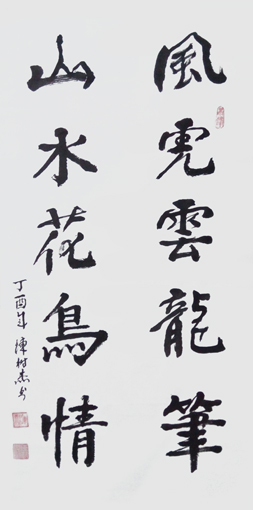 風虎雲龍筆
山水花鳥情
丁酉年 陳樹杰书